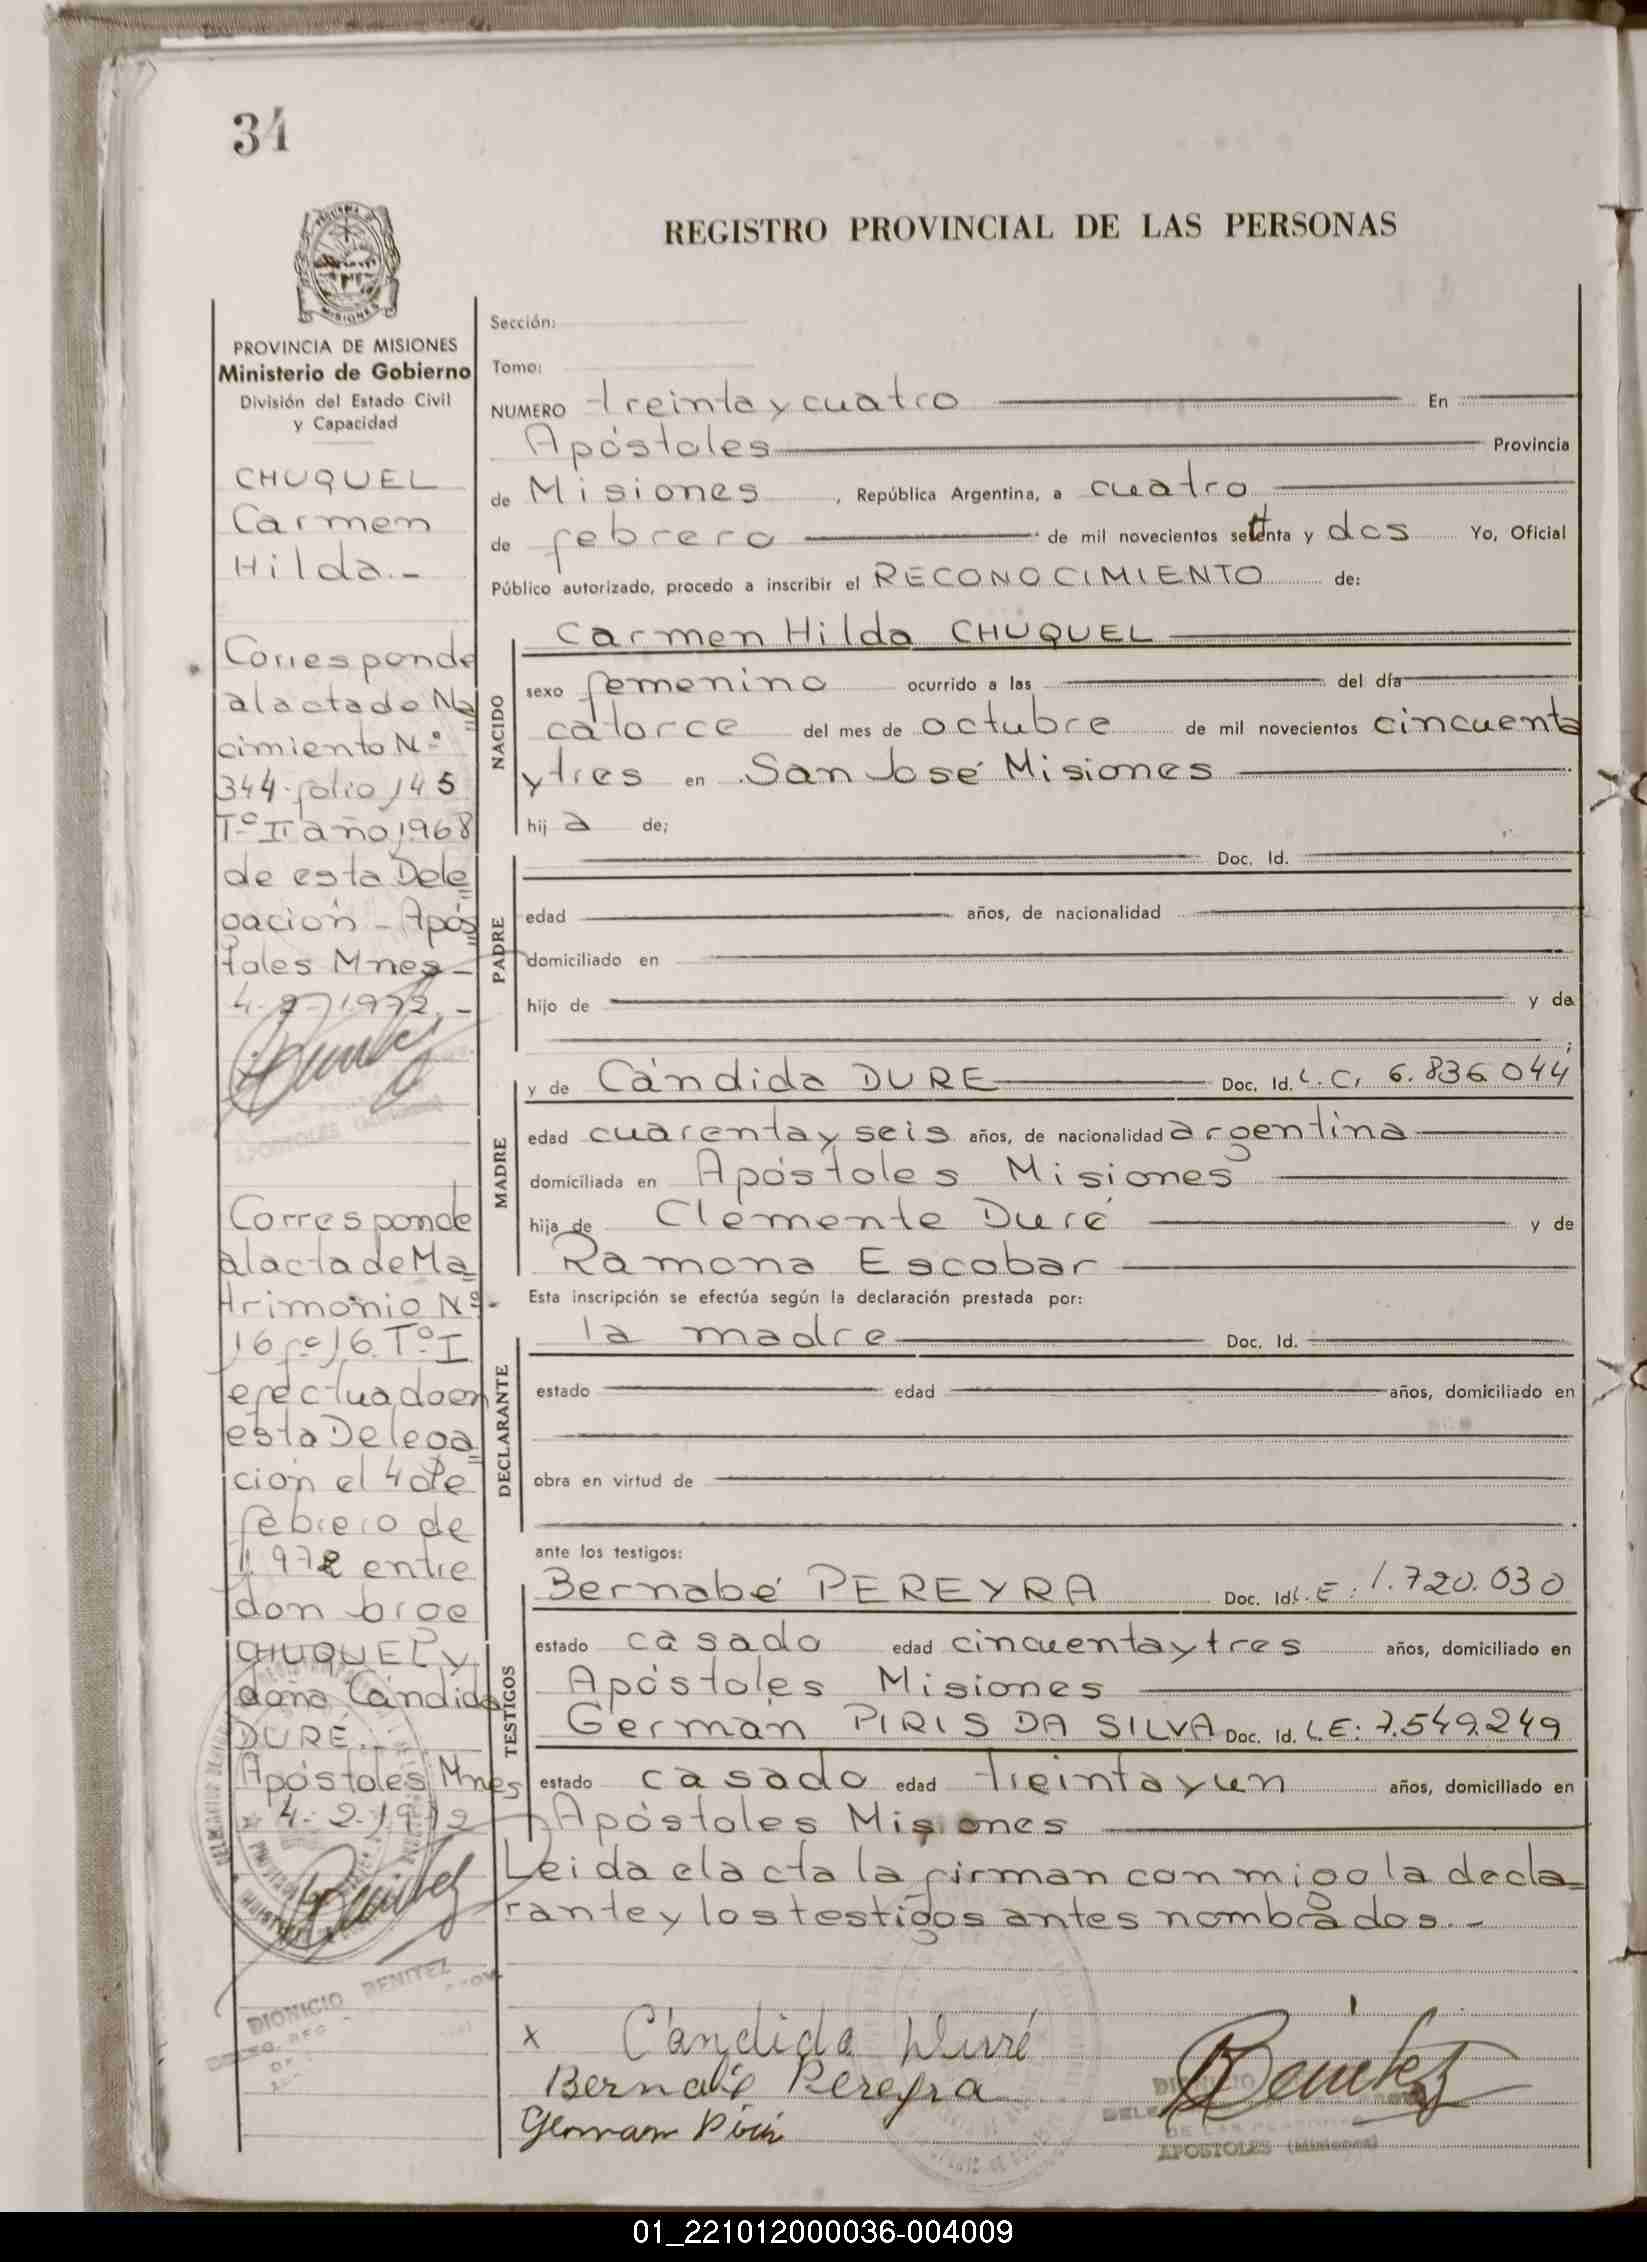 34
REGISTRO PROVINCIAL DE LAS PERSONAS
MISIONES
PROVINCIA DE MISIONES
Ministerio de Gobierno
División del Estado Civil
y Capacidad
CHUQUEL
Carmen
Hilda.-
Corresponde
al acta de Na
cimiento N.º
344 folio 145
T.º II año 1968
de esta Dele
gación - Após
toles Mnes -
4-2-1972.-
APOSTOLES (Misiones)
Corresponde
al acta de Ma
trimonio Nº
16 fº 16 Tº I
efectuado en
esta Delega
ción el 4 de
febrero de
1.972 entre
don Jorge
CHUQUEL y
doña Cándida
DURE.-
Apóstoles Mnes
4-2-1972
Benitez
DIONICIO BENITEZ
Sección:
Tomo:
NUMERO treinta y cuatro En
Apóstoles Provincia
de Misiones , República Argentina, a cuatro
de febrero de mil novecientos setenta y dos Yo, Oficial
Público autorizado, procedo a inscribir el RECONOCIMIENTO de:
NACIDO
Carmen Hilda CHUQUEL
sexo femenino ocurrido a las del día
catorce del mes de octubre de mil novecientos cincuenta
y tres en San José Misiones
hij a de;
PADRE
Doc. Id.
edad años, de nacionalidad
domiciliado en
hijo de y de
;
MADRE
y de Cándida DURE Doc. Id. L.C. 6.836.044
edad cuarenta y seis años, de nacionalidad argentina
domiciliada en Apóstoles Misiones
hija de Clemente Duré y de
Ramona Escobar
Esta inscripción se efectúa según la declaración prestada por:
DECLARANTE
la madre Doc. Id.
estado edad años, domiciliado en
obra en virtud de
ante los testigos:
TESTIGOS
Bernabé PEREYRA Doc. Id. L.E: 1.720.030
estado casado edad cincuenta y tres años, domiciliado en
Apóstoles Misiones
Germán PIRIS DA SILVA Doc. Id. L.E: 7.549.249
estado casado edad treinta y un años, domiciliado en
Apóstoles Misiones
Leida el acta la firman con migo la decla
rante y los testigos antes nombrados.-
x Cándida Durré
Bernabé Pereyra
German Piris
Benitez
APOSTOLES (Misiones)
01_221012000036-004009